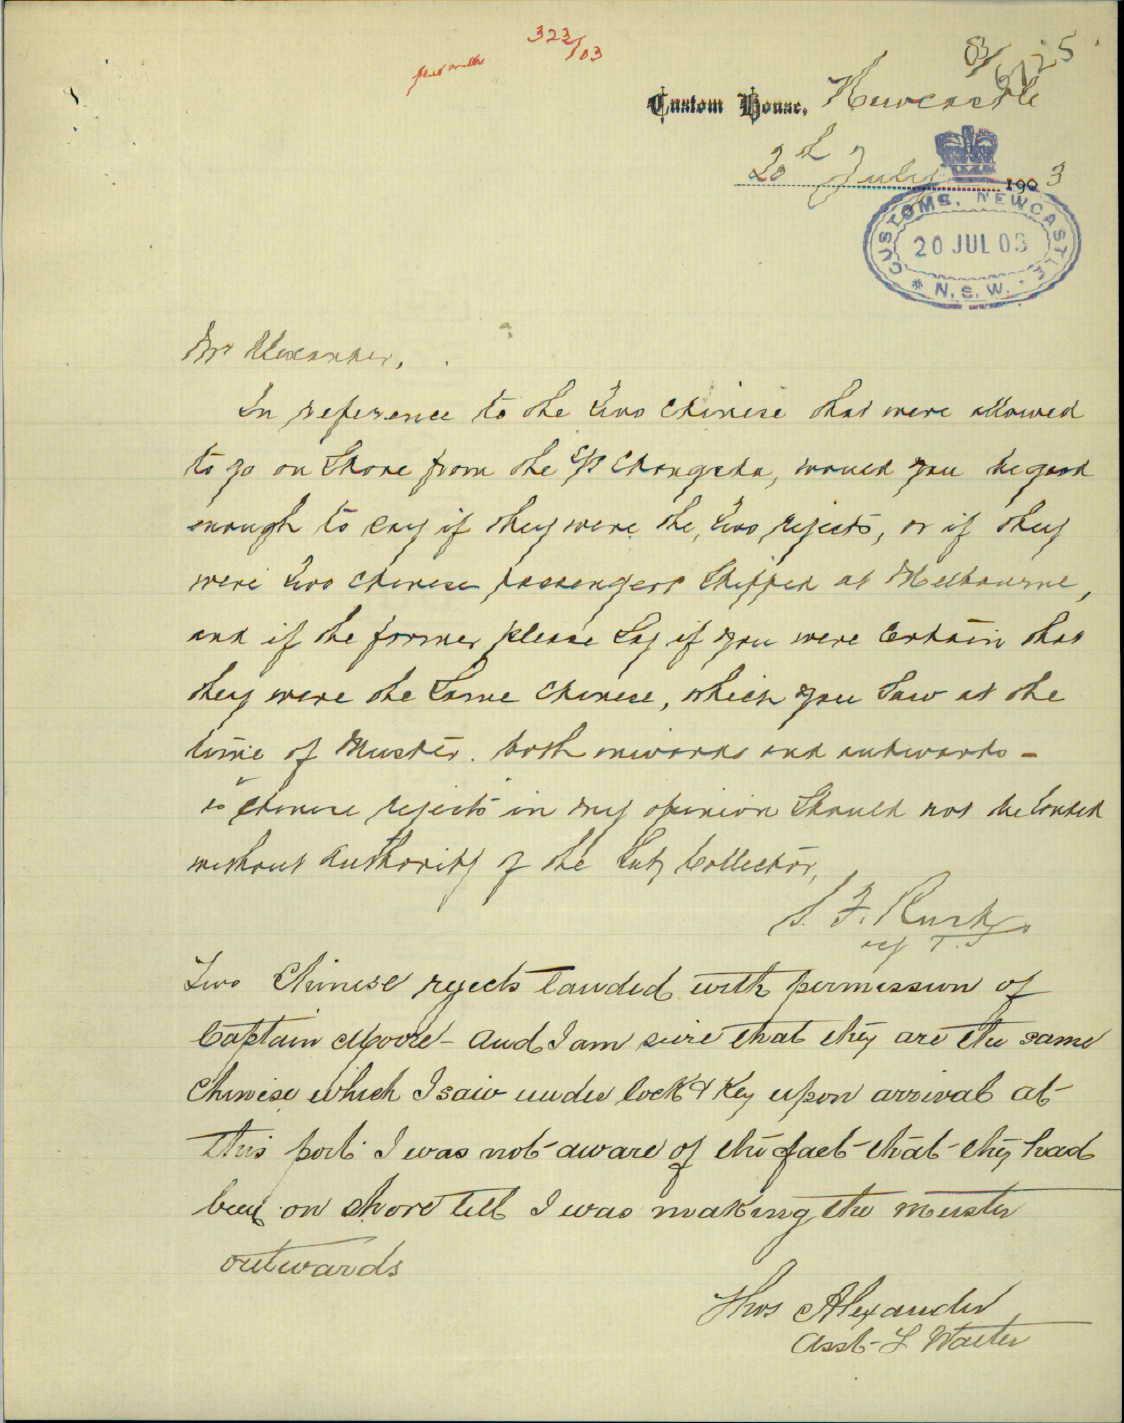 323/03
03/6725
Custom House, Newcastle
20th July 1903
CUSTOMS. NEWCASTLE
20 JUL 03
* N.S.W. *
Mr Alexander,
In reference to the two Chinese that were allowed
to go on Shore from the S/S Changsha, would you be good
enough to say if they were the two rejects, or if they
were two Chinese passengers Shipped at Melbourne,
and if the former please Say if you were Certain that
they were the Same Chinese, which you Saw at the
time of Muster. both inwards and outwards -
as Chinese rejects in my opinion Should not be landed
without Authority of the Suby Collector,
S. F. Rusk
acg T.S
Two Chinese rejects landed with permission of
Captain Moore - and I am sure that they are the same
Chinese which I saw under lock & Key upon arrival at
this port. I was not aware of the fact that they had
been on shore till I was making the muster
outwards
Thos Alexander
Asst L Waiter